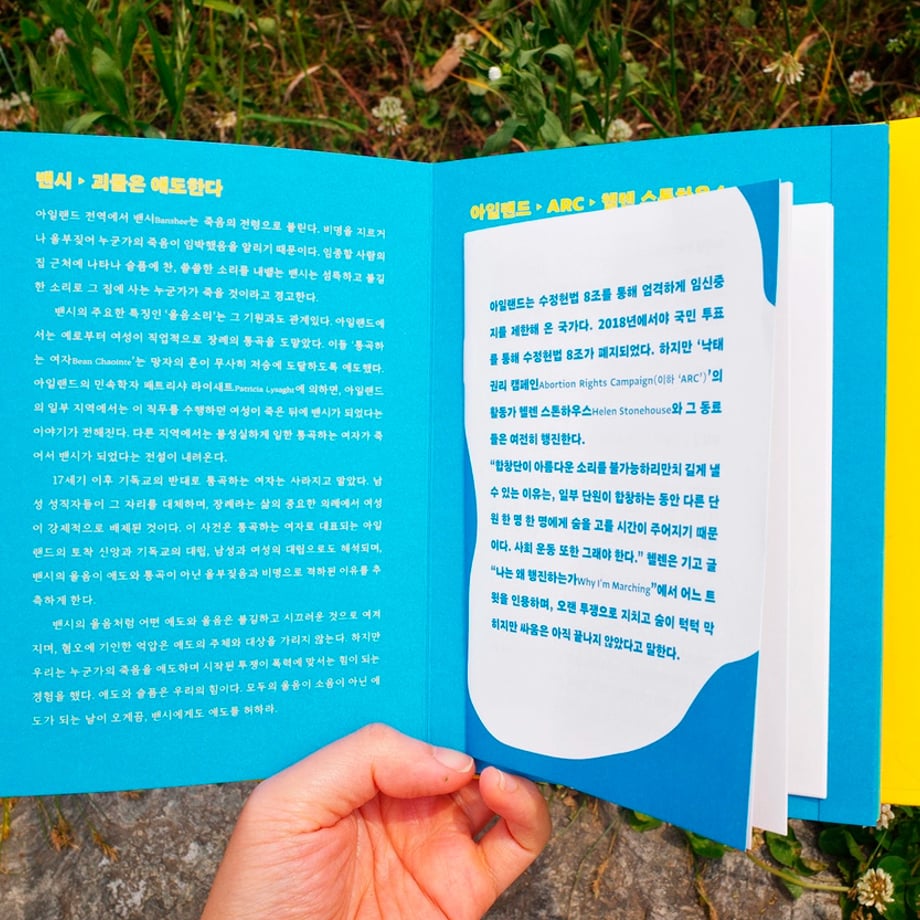 밴시 ▸ 괴물은 애도한다
아일랜드 전역에서 밴시Banshee는 죽음의 전령으로 불린다. 비명을 지르거
나 울부짖어 누군가의 죽음이 임박했음을 알리기 때문이다. 임종할 사람의
집 근처에 나타나 슬픔에 찬, 쓸쓸한 소리를 내뱉는 밴시는 섬뜩하고 불길
한 소리로 그 집에 사는 누군가가 죽을 것이라고 경고한다.
밴시의 주요한 특징인 ‘울음소리’는 그 기원과도 관계있다. 아일랜드에
서는 예로부터 여성이 직업적으로 장례의 통곡을 도맡았다. 이들 ‘통곡하
는 여자Bean Chaointe’는 망자의 혼이 무사히 저승에 도달하도록 애도했다.
아일랜드의 민속학자 패트리샤 라이새트Patricia Lysaght에 의하면, 아일랜드
의 일부 지역에서는 이 직무를 수행하던 여성이 죽은 뒤에 밴시가 되었다는
이야기가 전해진다. 다른 지역에서는 불성실하게 일한 통곡하는 여자가 죽
어서 밴시가 되었다는 전설이 내려온다.
17세기 이후 기독교의 반대로 통곡하는 여자는 사라지고 말았다. 남
성 성직자들이 그 자리를 대체하며, 장례라는 삶의 중요한 의례에서 여성
이 강제적으로 배제된 것이다. 이 사건은 통곡하는 여자로 대표되는 아일
랜드의 토착 신앙과 기독교의 대립, 남성과 여성의 대립으로도 해석되며,
밴시의 울음이 애도와 통곡이 아닌 울부짖음과 비명으로 격하된 이유를 추
측하게 한다.
밴시의 울음처럼 어떤 애도와 울음은 불길하고 시끄러운 것으로 여겨
지며, 혐오에 기인한 억압은 애도의 주체와 대상을 가리지 않는다. 하지만
우리는 누군가의 죽음을 애도하며 시작된 투쟁이 폭력에 맞서는 힘이 되는
경험을 했다. 애도와 슬픔은 우리의 힘이다. 모두의 울음이 소음이 아닌 애
도가 되는 날이 오게끔, 밴시에게도 애도를 허하라.
아일랜드 ▸ ARC ▸ 헬렌 스톤하우스
아일랜드는 수정헌법 8조를 통해 엄격하게 임신중
지를 제한해 온 국가다. 2018년에서야 국민 투표
를 통해 수정헌법 8조가 폐지되었다. 하지만 ‘낙태
권리 캠페인Abortion Rights Campaign(이하 ‘ARC’)’의
활동가 헬렌 스톤하우스Helen Stonehouse와 그 동료
들은 여전히 행진한다.
“합창단이 아름다운 소리를 불가능하리만치 길게 낼
수 있는 이유는, 일부 단원이 합창하는 동안 다른 단
원 한 명 한 명에게 숨을 고를 시간이 주어지기 때문
이다. 사회 운동 또한 그래야 한다.” 헬렌은 기고 글
“나는 왜 행진하는가Why I’m Marching”에서 어느 트
윗을 인용하며, 오랜 투쟁으로 지치고 숨이 턱턱 막
히지만 싸움은 아직 끝나지 않았다고 말한다.